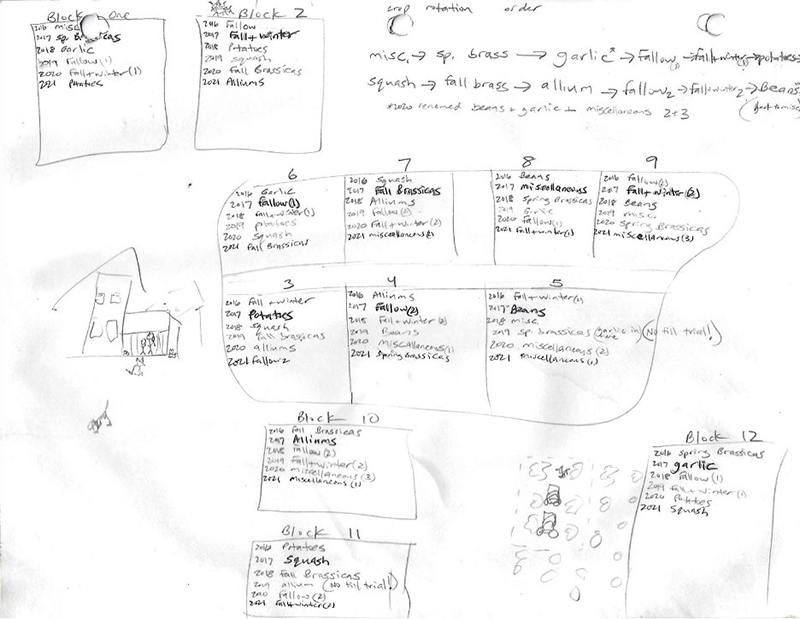 Block One
2016 misc
2017 sp. Brassicas
2018 Garlic
2019 Fallow (1)
2020 Fall+winter (1)
2021 Potatoes
Block 2
2016 Fallow
2017 Fall+winter
2018 Potatoes
2019 squash
2020 Fall Brassicas
2021 Alliums
crop rotation order
misc, → sp. brass → garlic* → Fallow(1) → fall+winter(1) → potatoes →
squash → fall brass → allium → fallow2 → fall+winter2 → Beans*
*2020 renamed beans + garlic to miscellaneous 2+3
6
2016 Garlic
2017 Fallow(1)
2018 Fall+winter(1)
2019 potatoes
2020 Squash
2021 Fall Brassicas
7
2016 Squash
2017 Fall Brassicas
2018 Alliums
2019 Fallow(2)
2020 Fall+Winter (2)
2021 miscellaneous(2)
8
2016 Beans
2017 miscellaneous
2018 Spring Brassicas
2019 Garlic
2020 Fallow(1)
2021 Fall+winter(1)
9
2016 Fallow(2)
2017 Fall+Winter(2)
2018 Beans
2019 misc.
2020 Spring Brassicas
2021 miscellaneous (3)
3
2016 Fall+winter
2017 Potatoes
2018 Squash
2019 fall brassicas
2020 alliums
2021 Fallow 2
4
2016 Alliums
2017 Fallow(2)
2018 Fall+Winter(2)
2019 Beans
2020 miscellaneous(1)
2021 Spring Brassicas
5
2016 Fall+Winter(2)
2017 Beans
2018 misc.
2019 Sp. Brassicas (garlic in here) (No till trial!)
2020 miscellaneous (2)
2021 miscellaneous (1)
Block 10
2016 Fall Brassicas
2017 Alliums
2018 Fallow (2)
2019 Fall+winter (2)
2020 miscellaneous (3)
2021 miscellaneous (1)
Block 11
2016 Potatoes
2017 Squash
2018 Fall Brassicas
2019 allium (No till trial!)
2020 Fallow (2)
2021 Fall+winter(2)
Block 12
2016 Spring Brassicas
2017 garlic
2018 Fallow (1)
2019 Fall+winter (1)
2020 Potatoes
2021 Squash